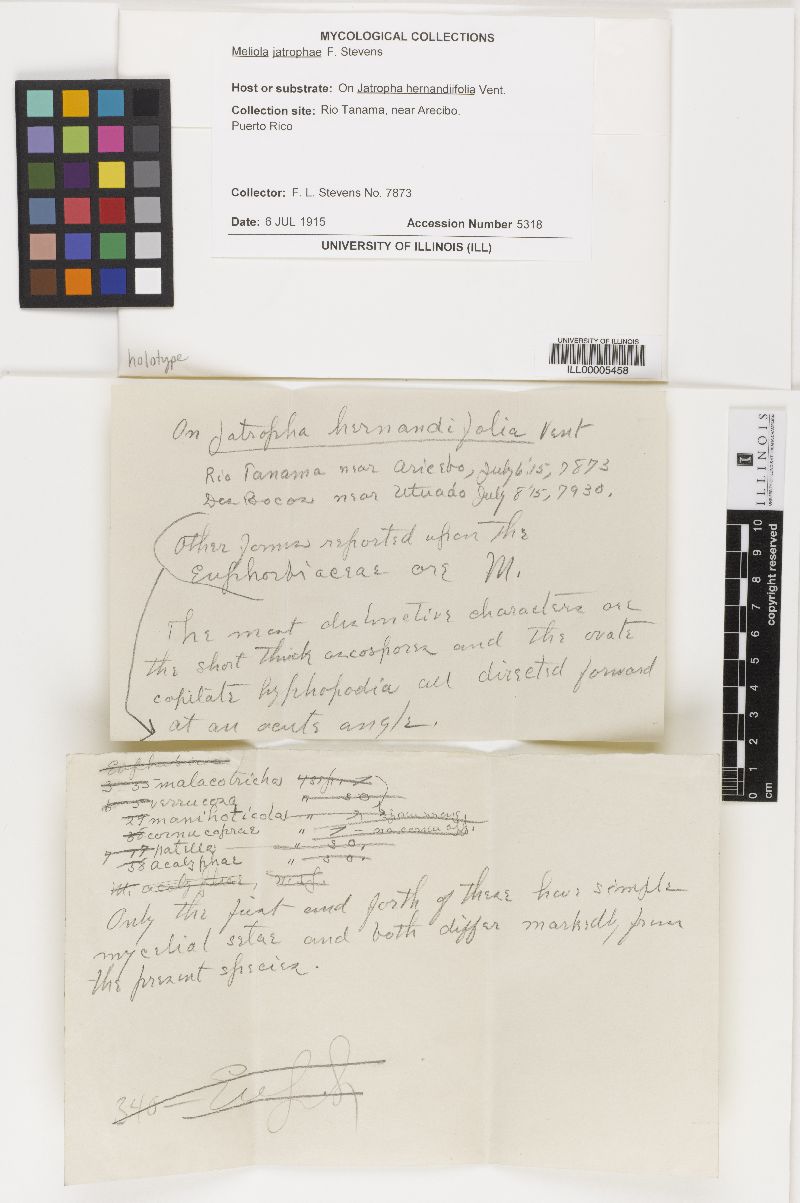 MYCOLOGICAL COLLECTIONS
Meliola jatrophae F. Stevens
Host or substrate: On Jatropha hernandiifolia Vent.
Collection site: Rio Tanama, near Arecibo.
Puerto Rico
Collector: F. L. Stevens No. 7873
Date: 6 JUL 1915 Accession Number 5318
UNIVERSITY OF ILLINOIS (ILL)
holotype
UNIVERSITY OF ILLINOIS
ILL00005458
On Jatropha hernandifolia Vent
Rio Tanama near Aricebo, July 6 '15, 7873
Dos Bocos near Utuado July 8 '15, 7930.
Other forms reported upon the
Euphorbiaceae are M.
The most distinctive characters are
the short thick ascospores and the ovate
capitate hyphopodia all directed forward
at an acute angle.
malacotricha
verrucosa
manihoticola
cornucopiae
patella
acalyphae
M. acalyphae,
Only the first and forth of these have simple
mycelial setae and both differ markedly from
the present species.
346
ILLINOIS
0 1 2 3 4 5 6 7 8 9 10
cm
copyright reserved